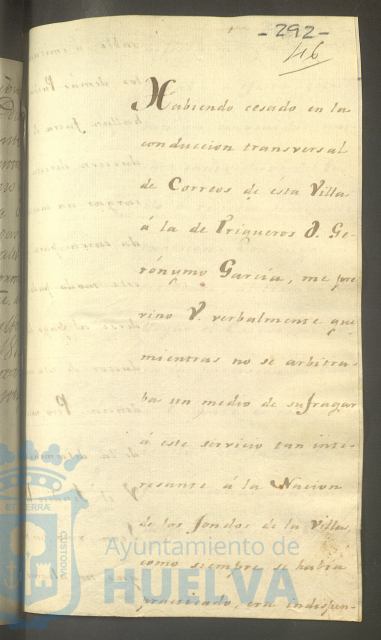 -292-
46
Habiendo cesado en la
conduccion transversal
de Correos de ésta Villa
á la de Trigueros D. Ge-
rónymo Garcia, me pre
vino V. verbalmente que
mientras no se arbitra-
ba un medio de sufragar
á este servicio tan inte-
resante á la Nacion
de los fondos de la Villa
como siempre se habia
practicado, era indispen-
Ayuntamiento de
HUELVA